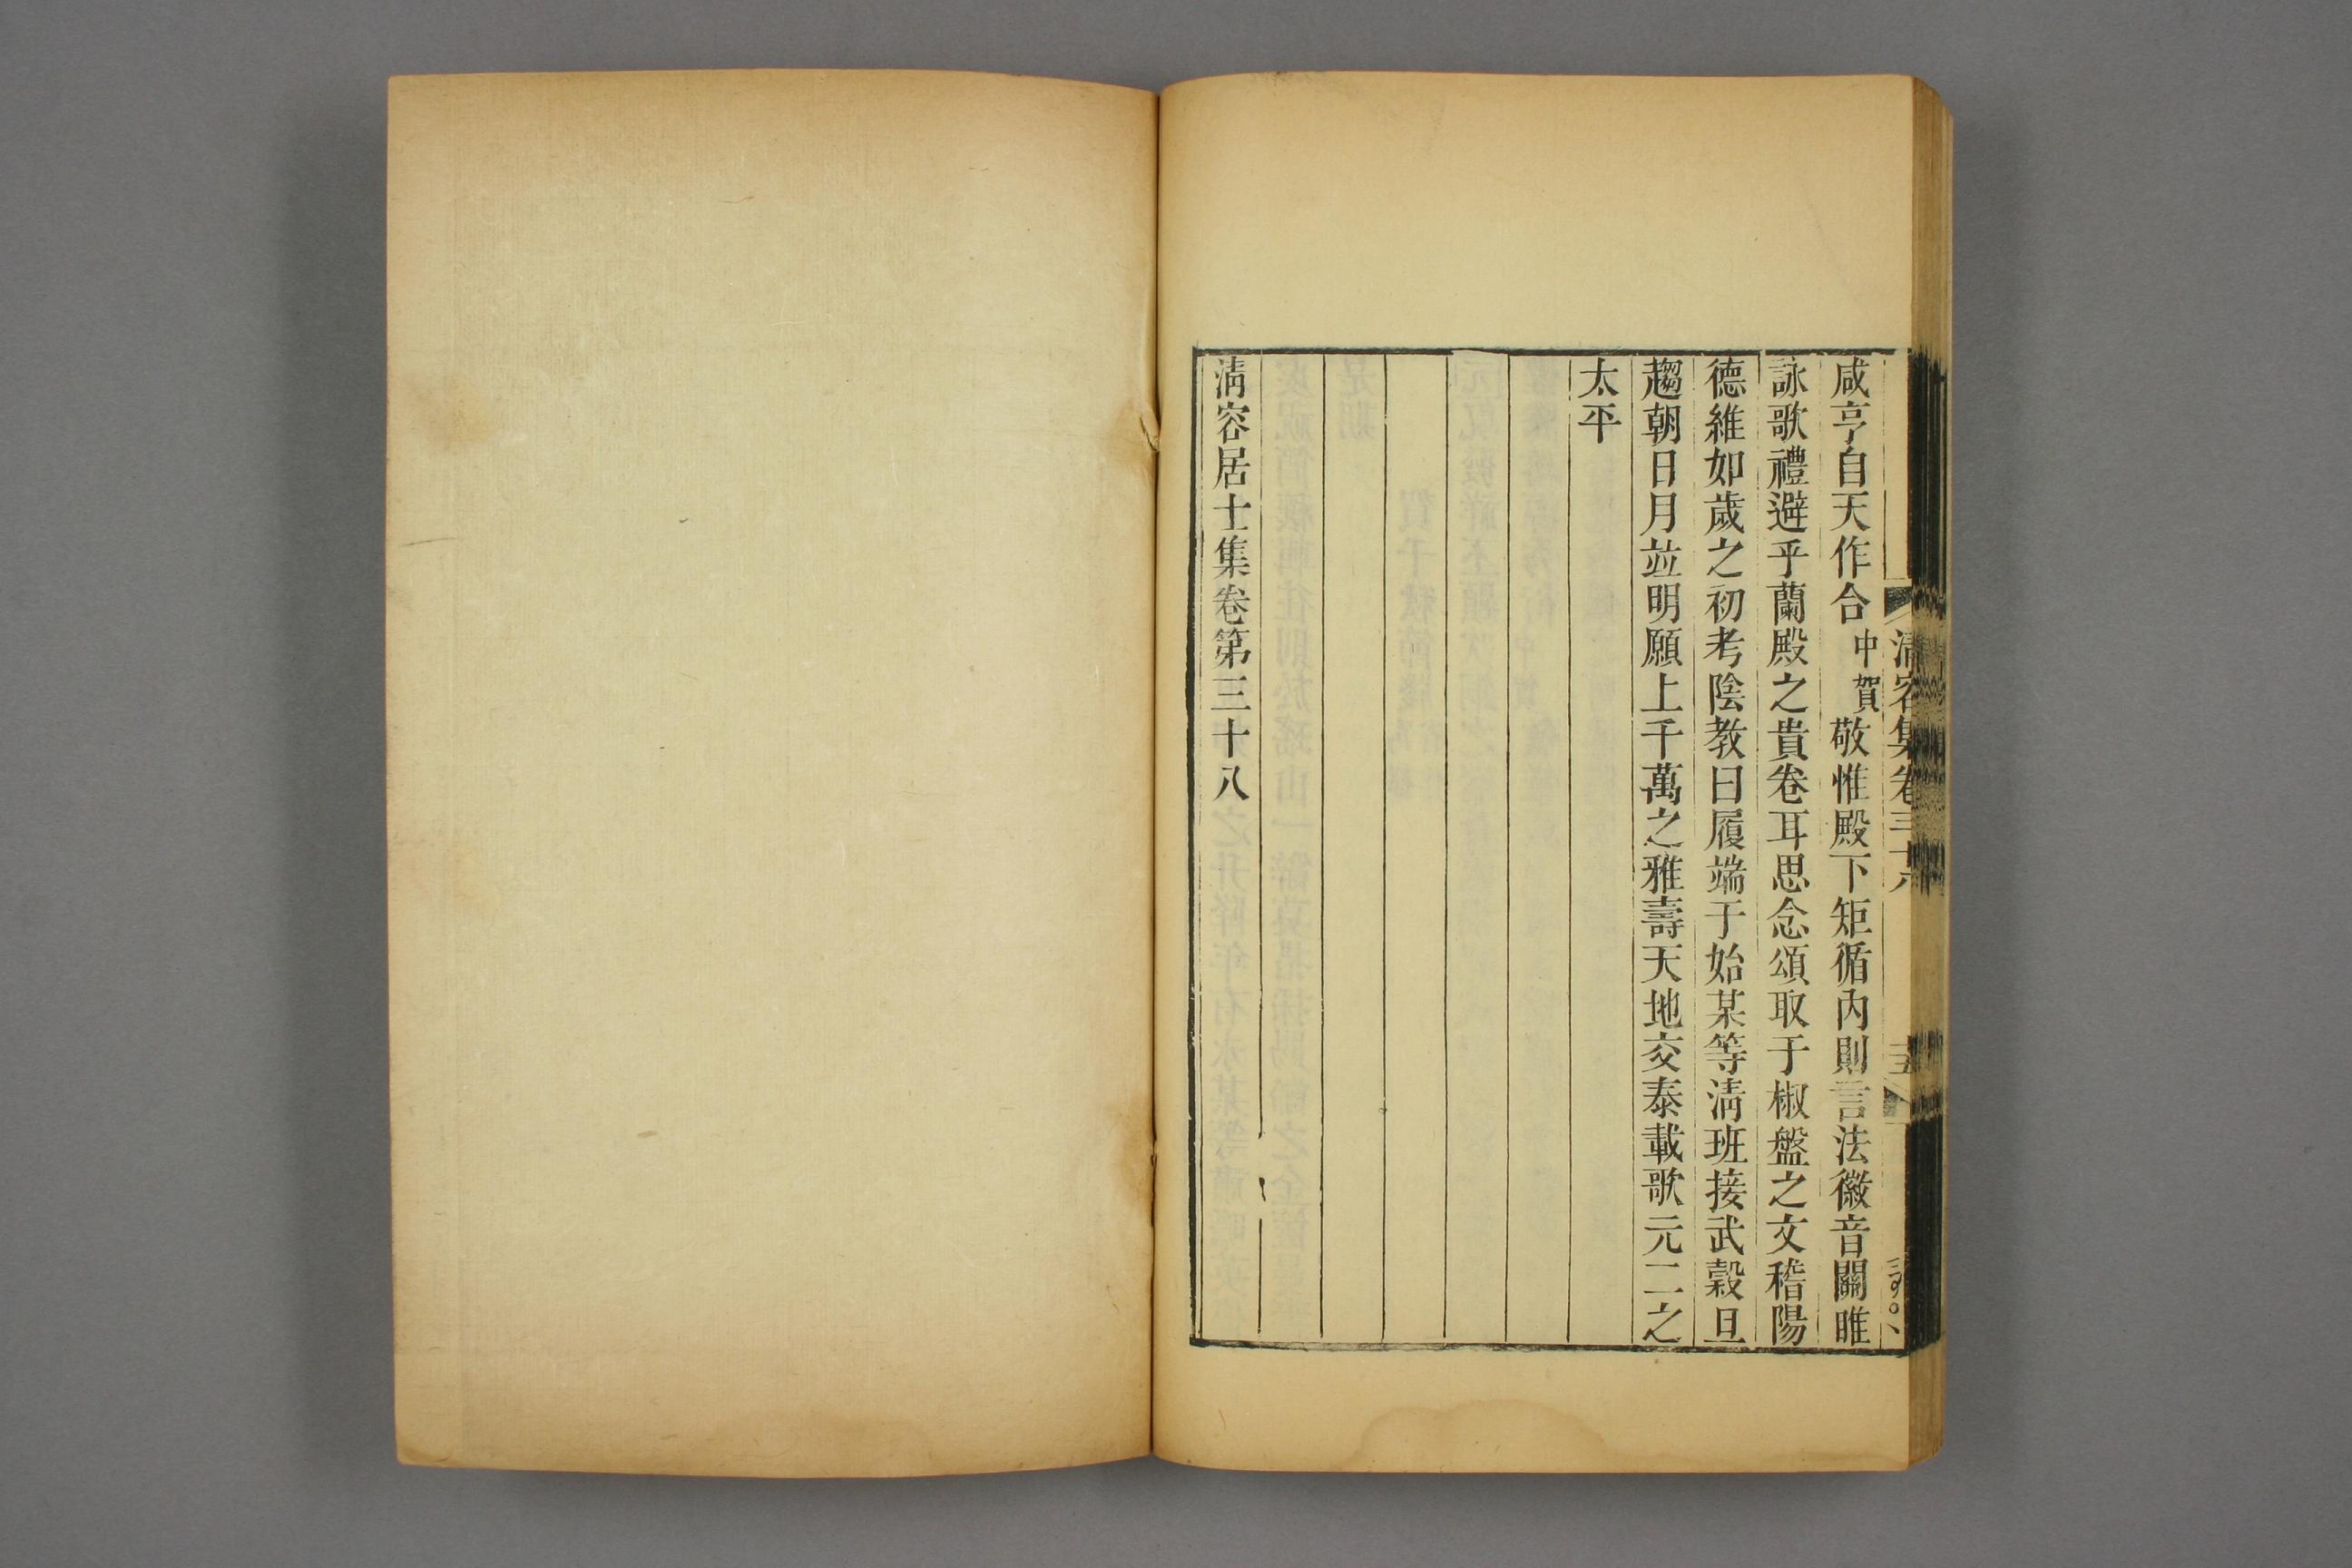 咸亨自天作合中賀敬惟殿下矩循內則言法徽音關雎
詠歌禮避乎蘭殿之貴卷耳思念頌取于椒盤之文稽陽
德維如歲之初考陰教曰履端于始某等淸班接武穀旦
趨朝日月並明願上千萬之雅壽天地交泰載歌元二之
太平
淸容居士集卷第三十八
淸容集卷三十八